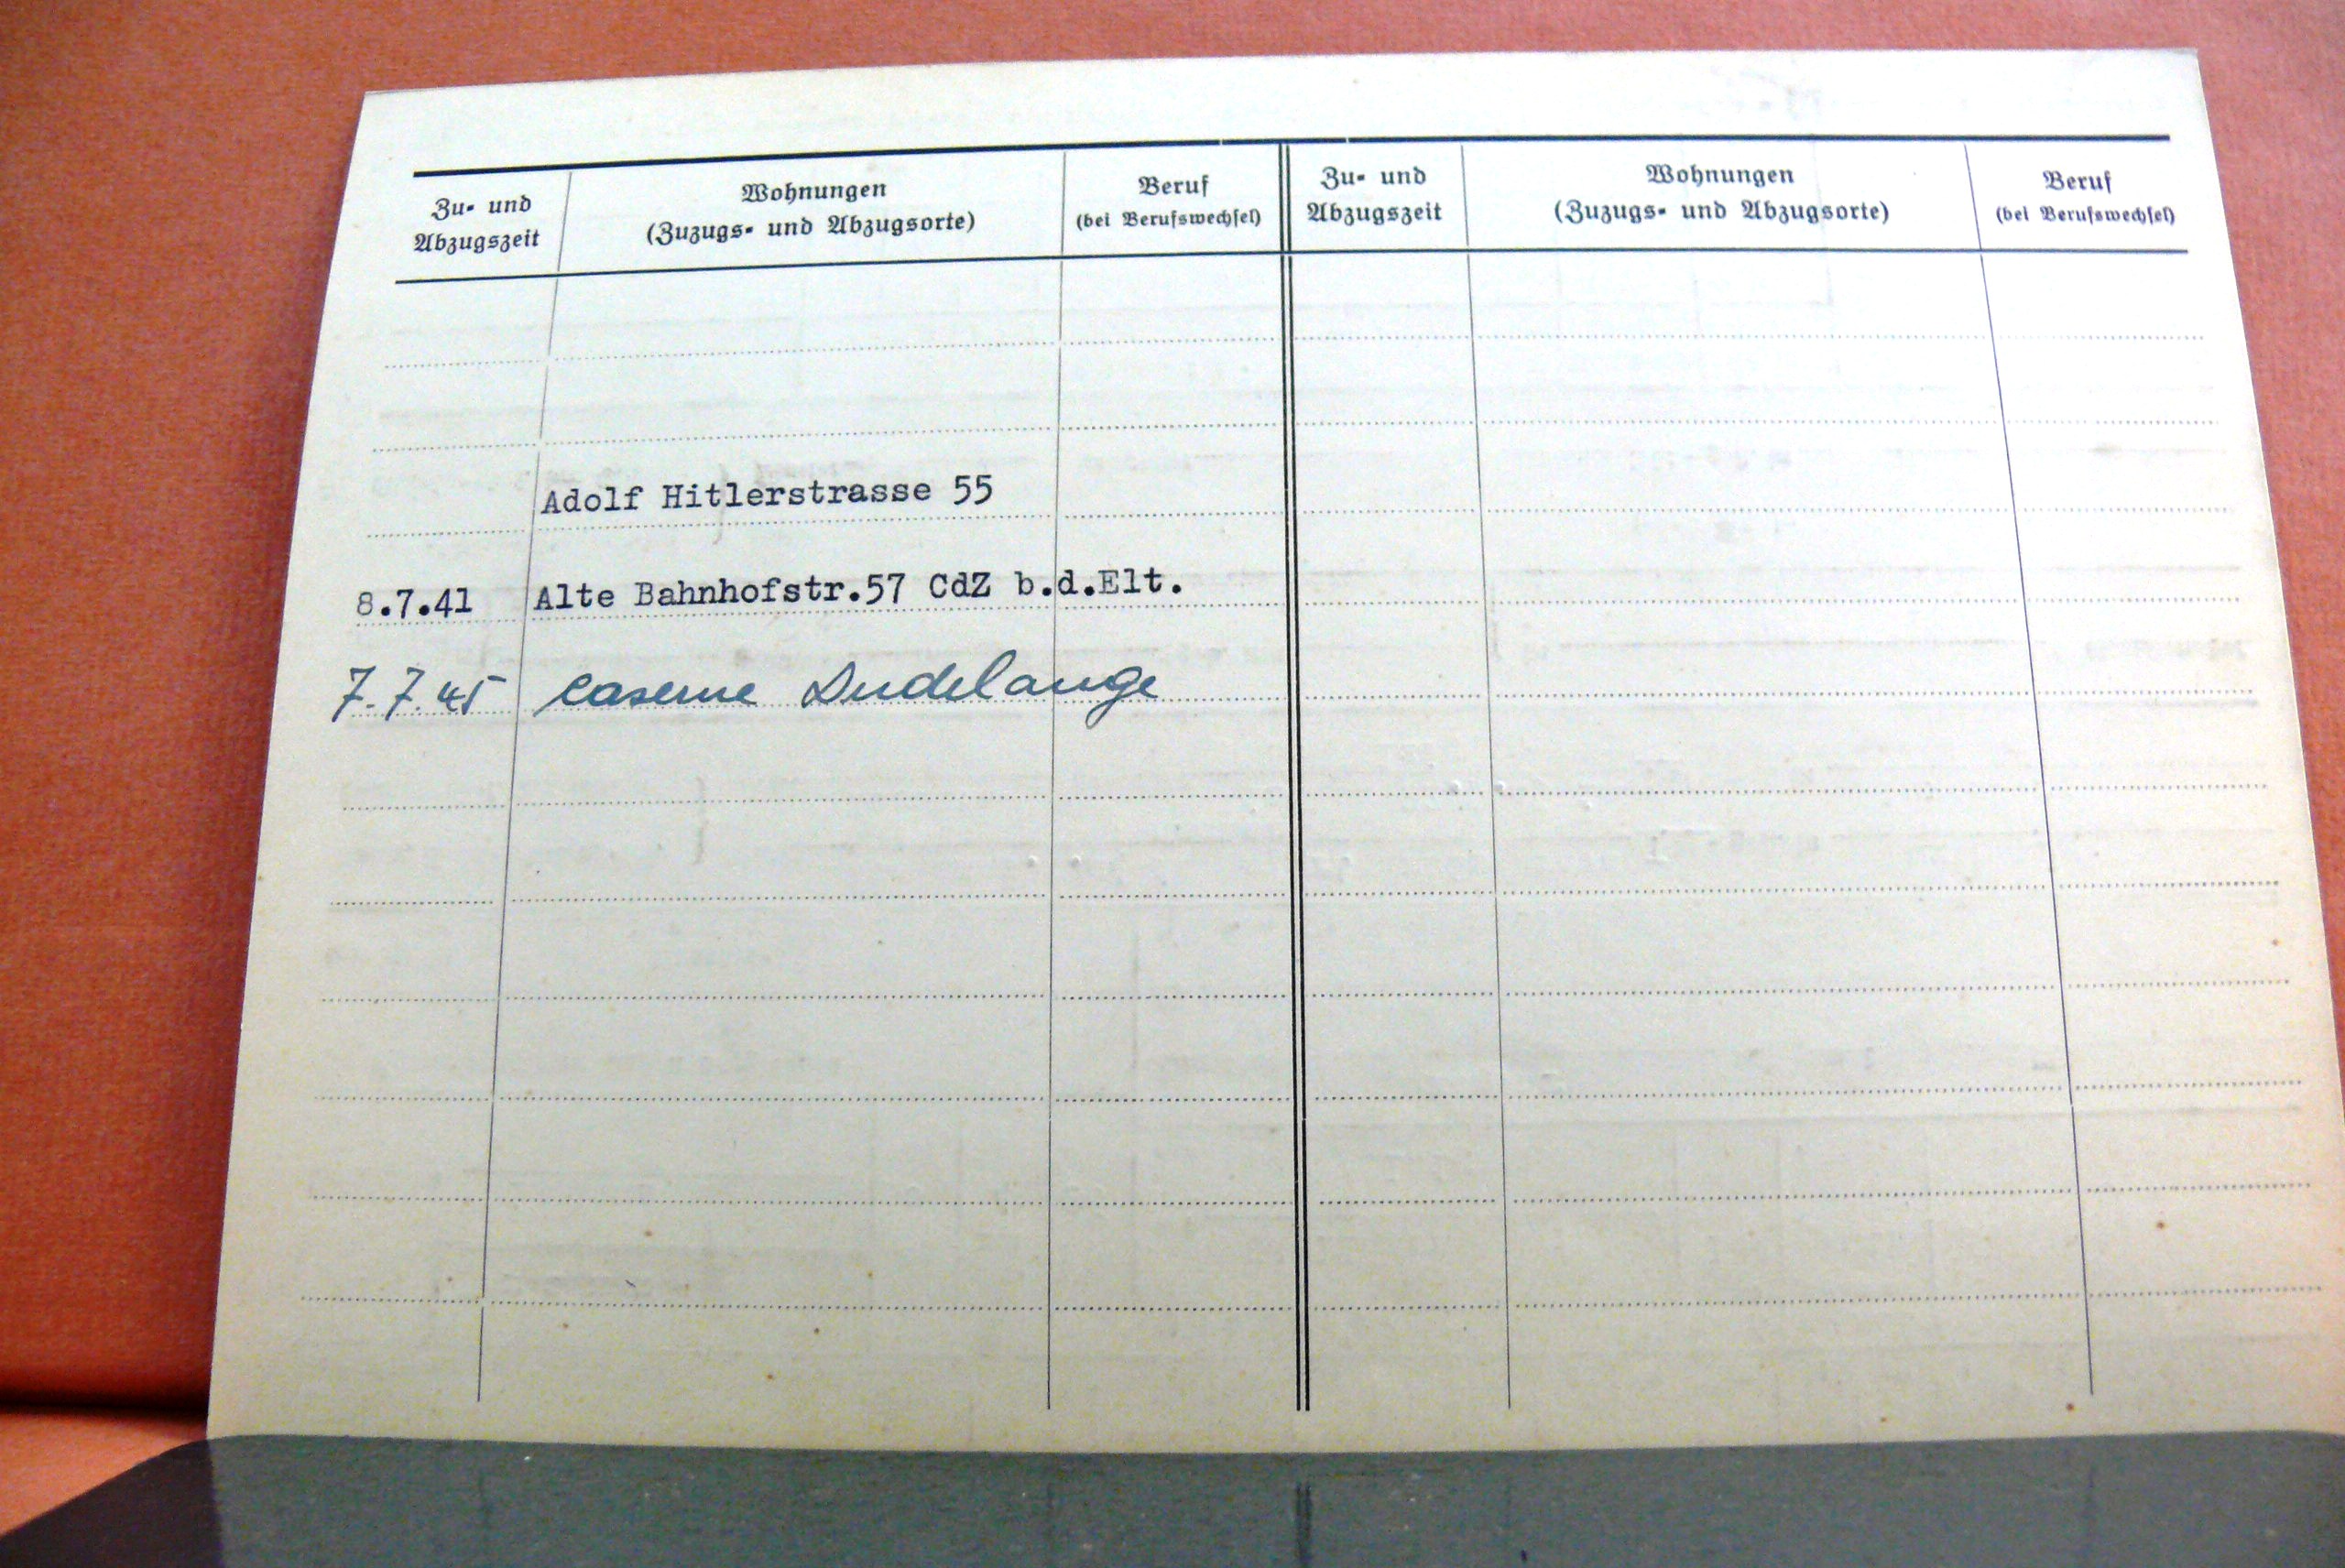 Zu- und
Abzugszeit
Wohnungen
(Zuzugs- und Abzugsorte)
Beruf
(bei Berufswechsel)
Zu- und
Abzugszeit
Wohnungen
(Zuzugs- und Abzugsorte)
Beruf
(bei Berufswechsel)
Adolf Hitlerstrasse 55
8.7.41 Alte Bahnhofstr.57 CdZ b.d.Elt.
7.7.45 caserne Dudelange